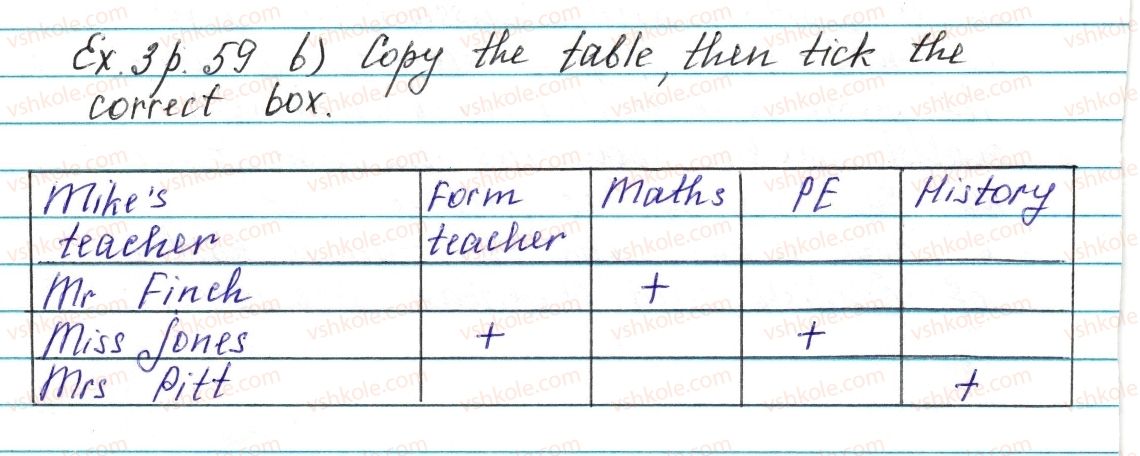 Ex. 3 p. 59 b) Copy the table, then tick the
correct box.
Mike's teacher Form teacher Maths PE History
Mr Finch +
Miss Jones + +
Mrs Pitt +
vshkole.com